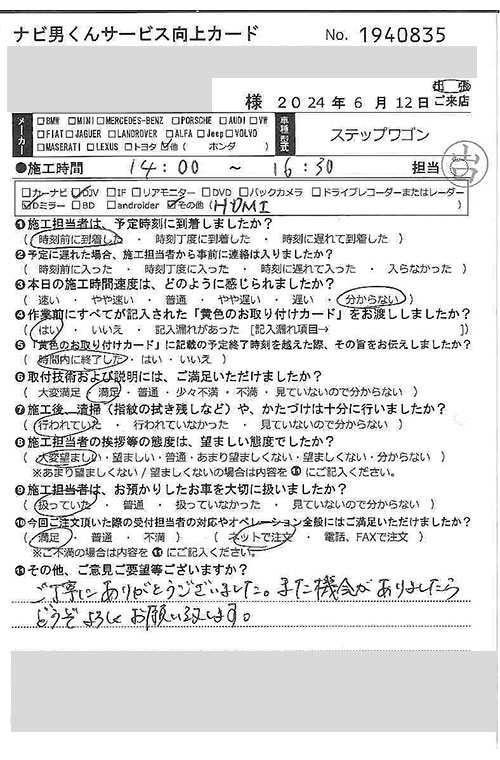 ナビ男くんサービス向上カード No. 1940835
出張
様 2024年 6月 12日 ご来店
メーカー □BMW □MINI □MERCEDES-BENZ □PORSCHE □AUDI □VW
□FIAT □JAGUER □LANDROVER □ALFA □Jeep □VOLVO
□MASERATI □LEXUS □トヨタ ☑他 ( ホンダ )
車種型式 ステップワゴン
●施工時間 14:00 ~ 16:30 担当
□カーナビ ☑DIV □IF □リアモニター □DVD □バックカメラ □ドライブレコーダーまたはレーダー
☑Dミラー □BD □androider ☑その他 ( HDMI )
❶施工担当者は、予定時刻に到着しましたか?
( 時刻前に到着した ・ 時刻丁度に到着した ・ 時刻に遅れて到着した )
❷予定に遅れた場合、施工担当者から事前に連絡は入りましたか?
( 時刻前に入った ・ 時刻丁度に入った ・ 時刻に遅れて入った ・ 入らなかった )
❸本日の施工時間速度は、どのように感じられましたか?
( 速い ・ やや速い ・ 普通 ・ やや遅い ・ 遅い ・ 分からない )
❹作業前にすべてが記入された「黄色のお取り付けカード」をお渡ししましたか?
( はい ・ いいえ ・ 記入漏れがあった [記入漏れ項目→ ])
❺「黄色のお取り付けカード」に記載の予定終了時刻を越えた際、その旨をお伝えしましたか?
( 時間内に終了した ・ はい ・ いいえ )
❻取付技術および説明には、ご満足いただけましたか?
( 大変満足 ・ 満足 ・ 普通 ・ 少々不満 ・ 不満 ・ 見ていないので分からない )
❼施工後、清掃(指紋の拭き残しなど)や、かたづけは十分に行いましたか?
( 行われていた ・ 行われていなかった ・ 見ていないので分からない )
❽施工担当者の挨拶等の態度は、望ましい態度でしたか?
( 大変望ましい ・ 望ましい ・ 普通 ・ あまり望ましくない ・ 望ましくない ・ 分からない )
※あまり望ましくない / 望ましくないの場合は内容を⓫にご記入ください。
❾施工担当者は、お預かりしたお車を大切に扱いましたか?
( 扱っていた ・ 普通 ・ 扱っていなかった ・ 見ていないので分からない )
❿今回ご注文頂いた際の受付担当者の対応やオペレーション全般にはご満足いただけましたか?
( 満足 ・ 普通 ・ 不満 ) ( ネットで注文 ・ 電話、FAXで注文 )
※ご不満の場合は内容を⓫にご記入ください。
⓫その他、ご意見ご要望等ございますか?
ご丁寧にありがとうございました。また機会がありましたら
どうぞよろしくお願い致します。